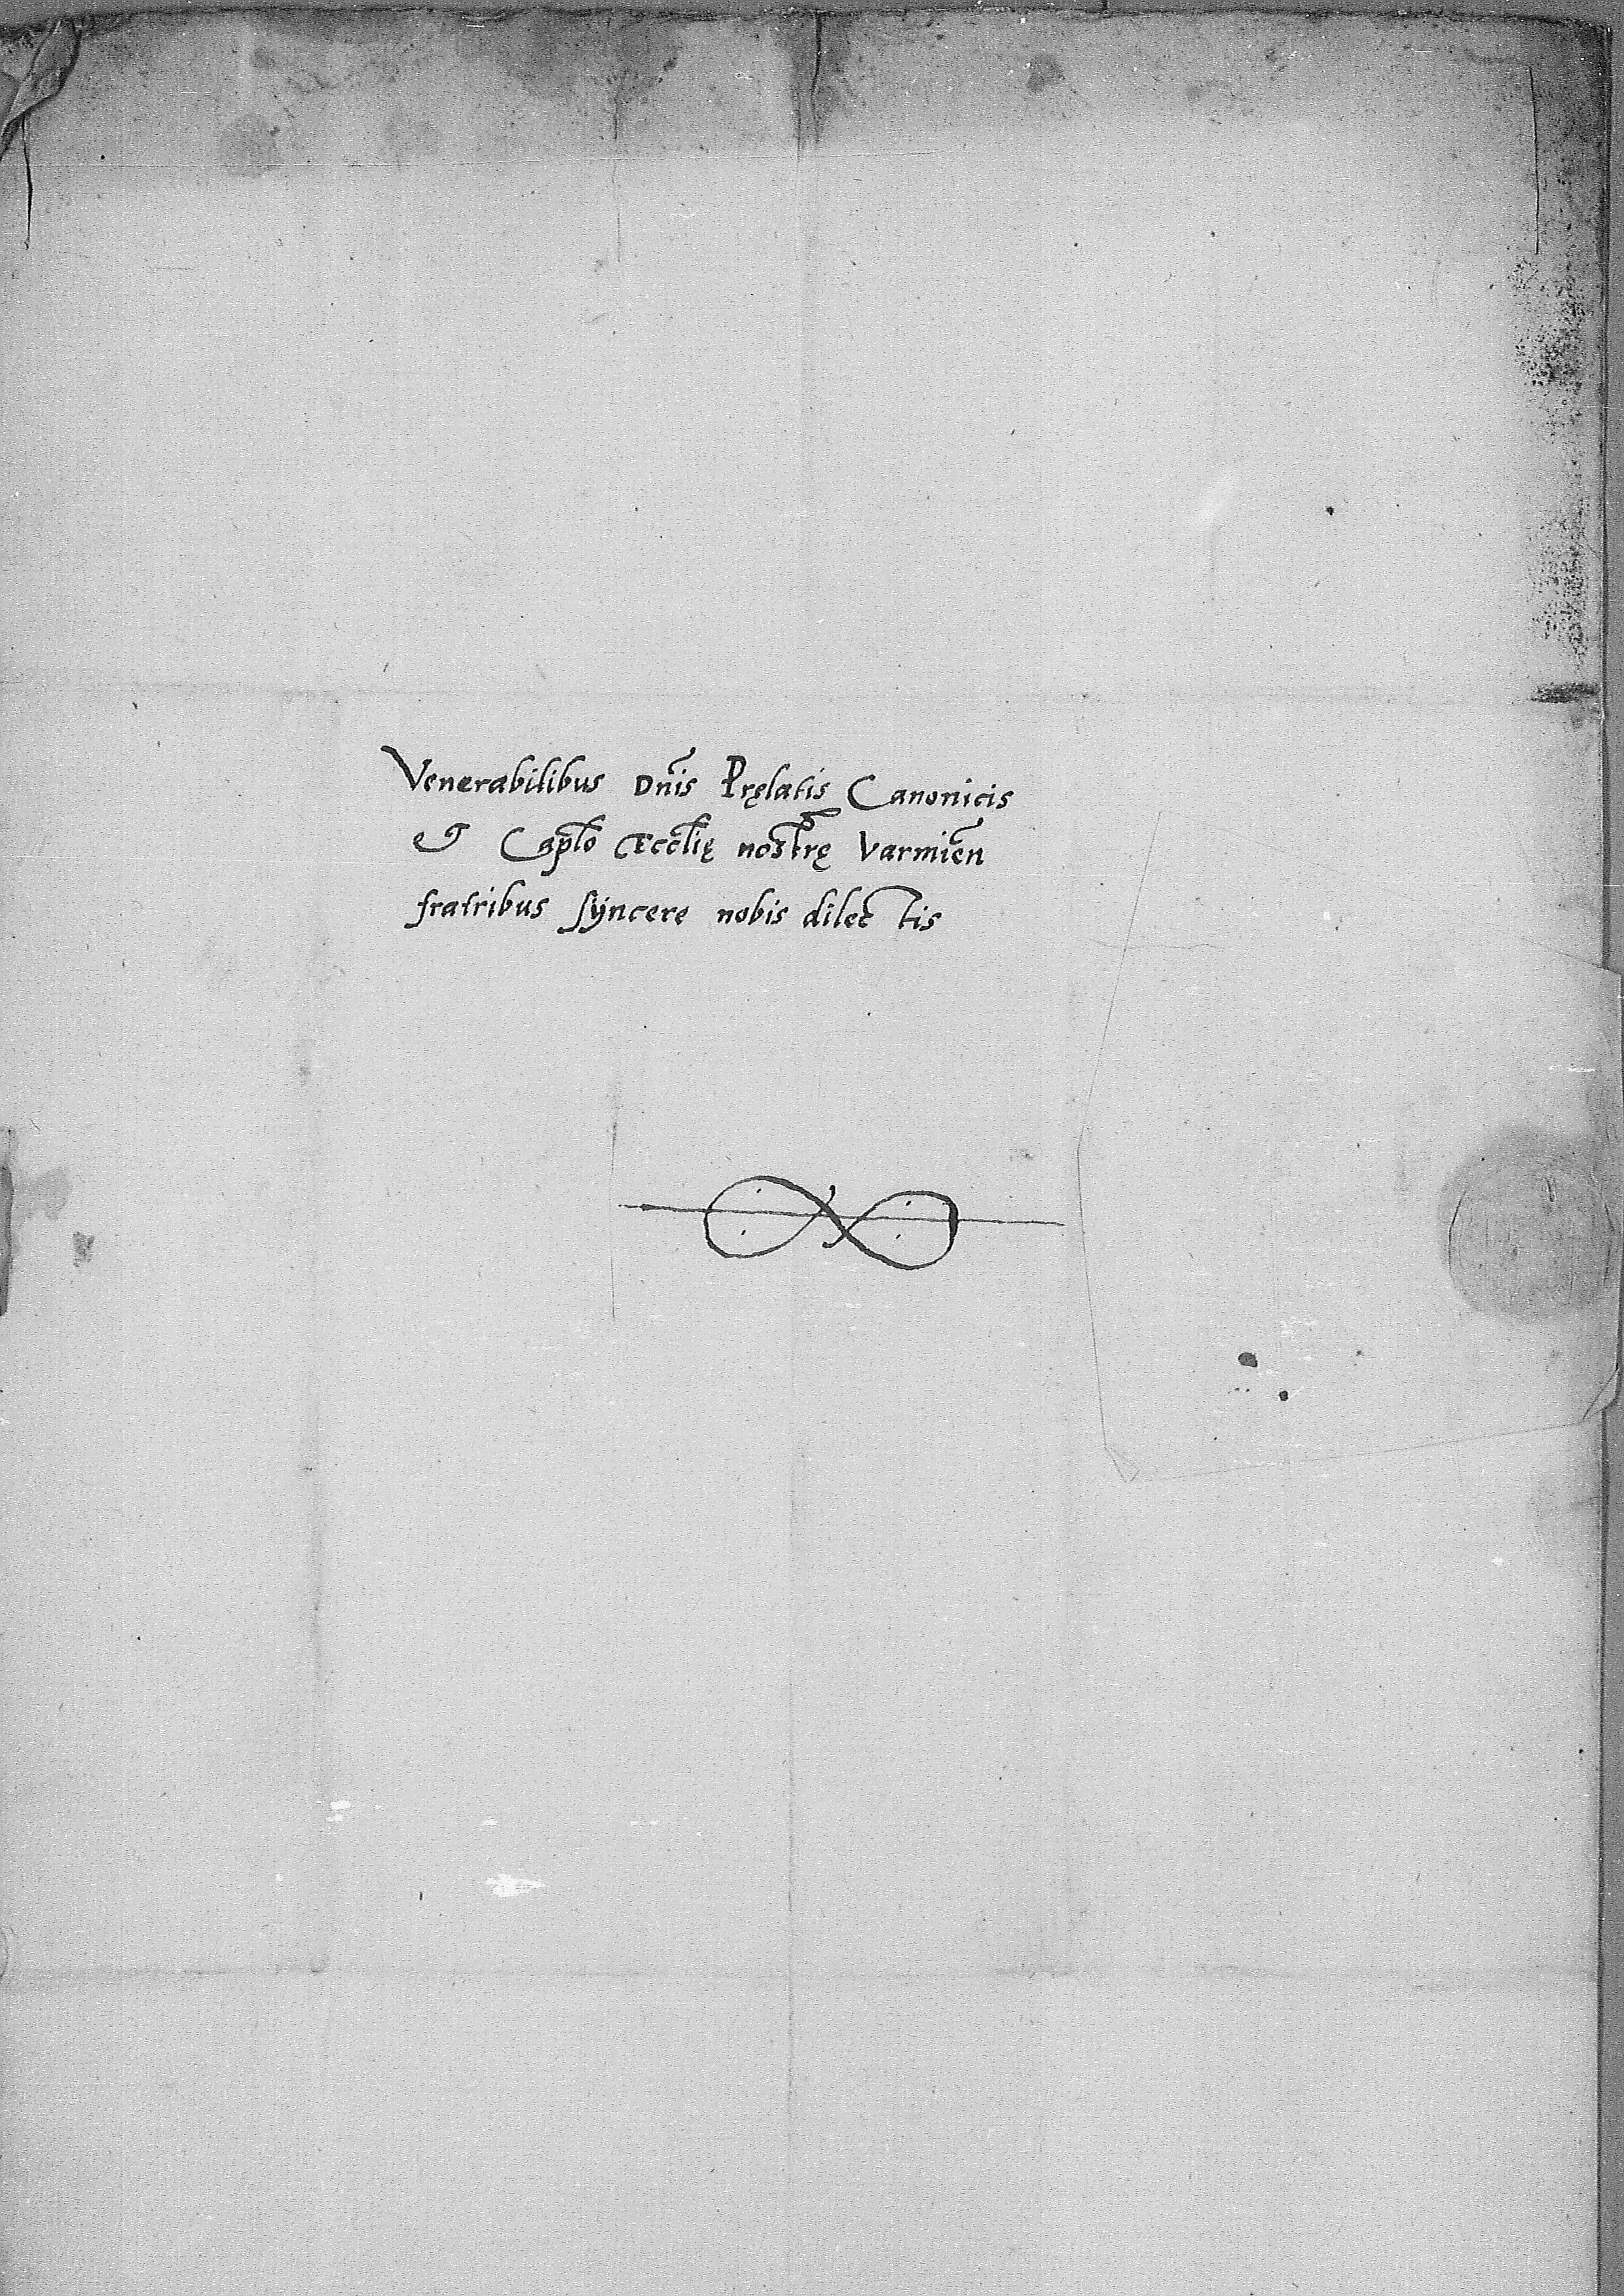 Venerabilibus Dn̄is Pręlatis Canonicis
et Cap̄lo Ecc̄lię nostrę Varmień
fratribus syncere nobis dilectis